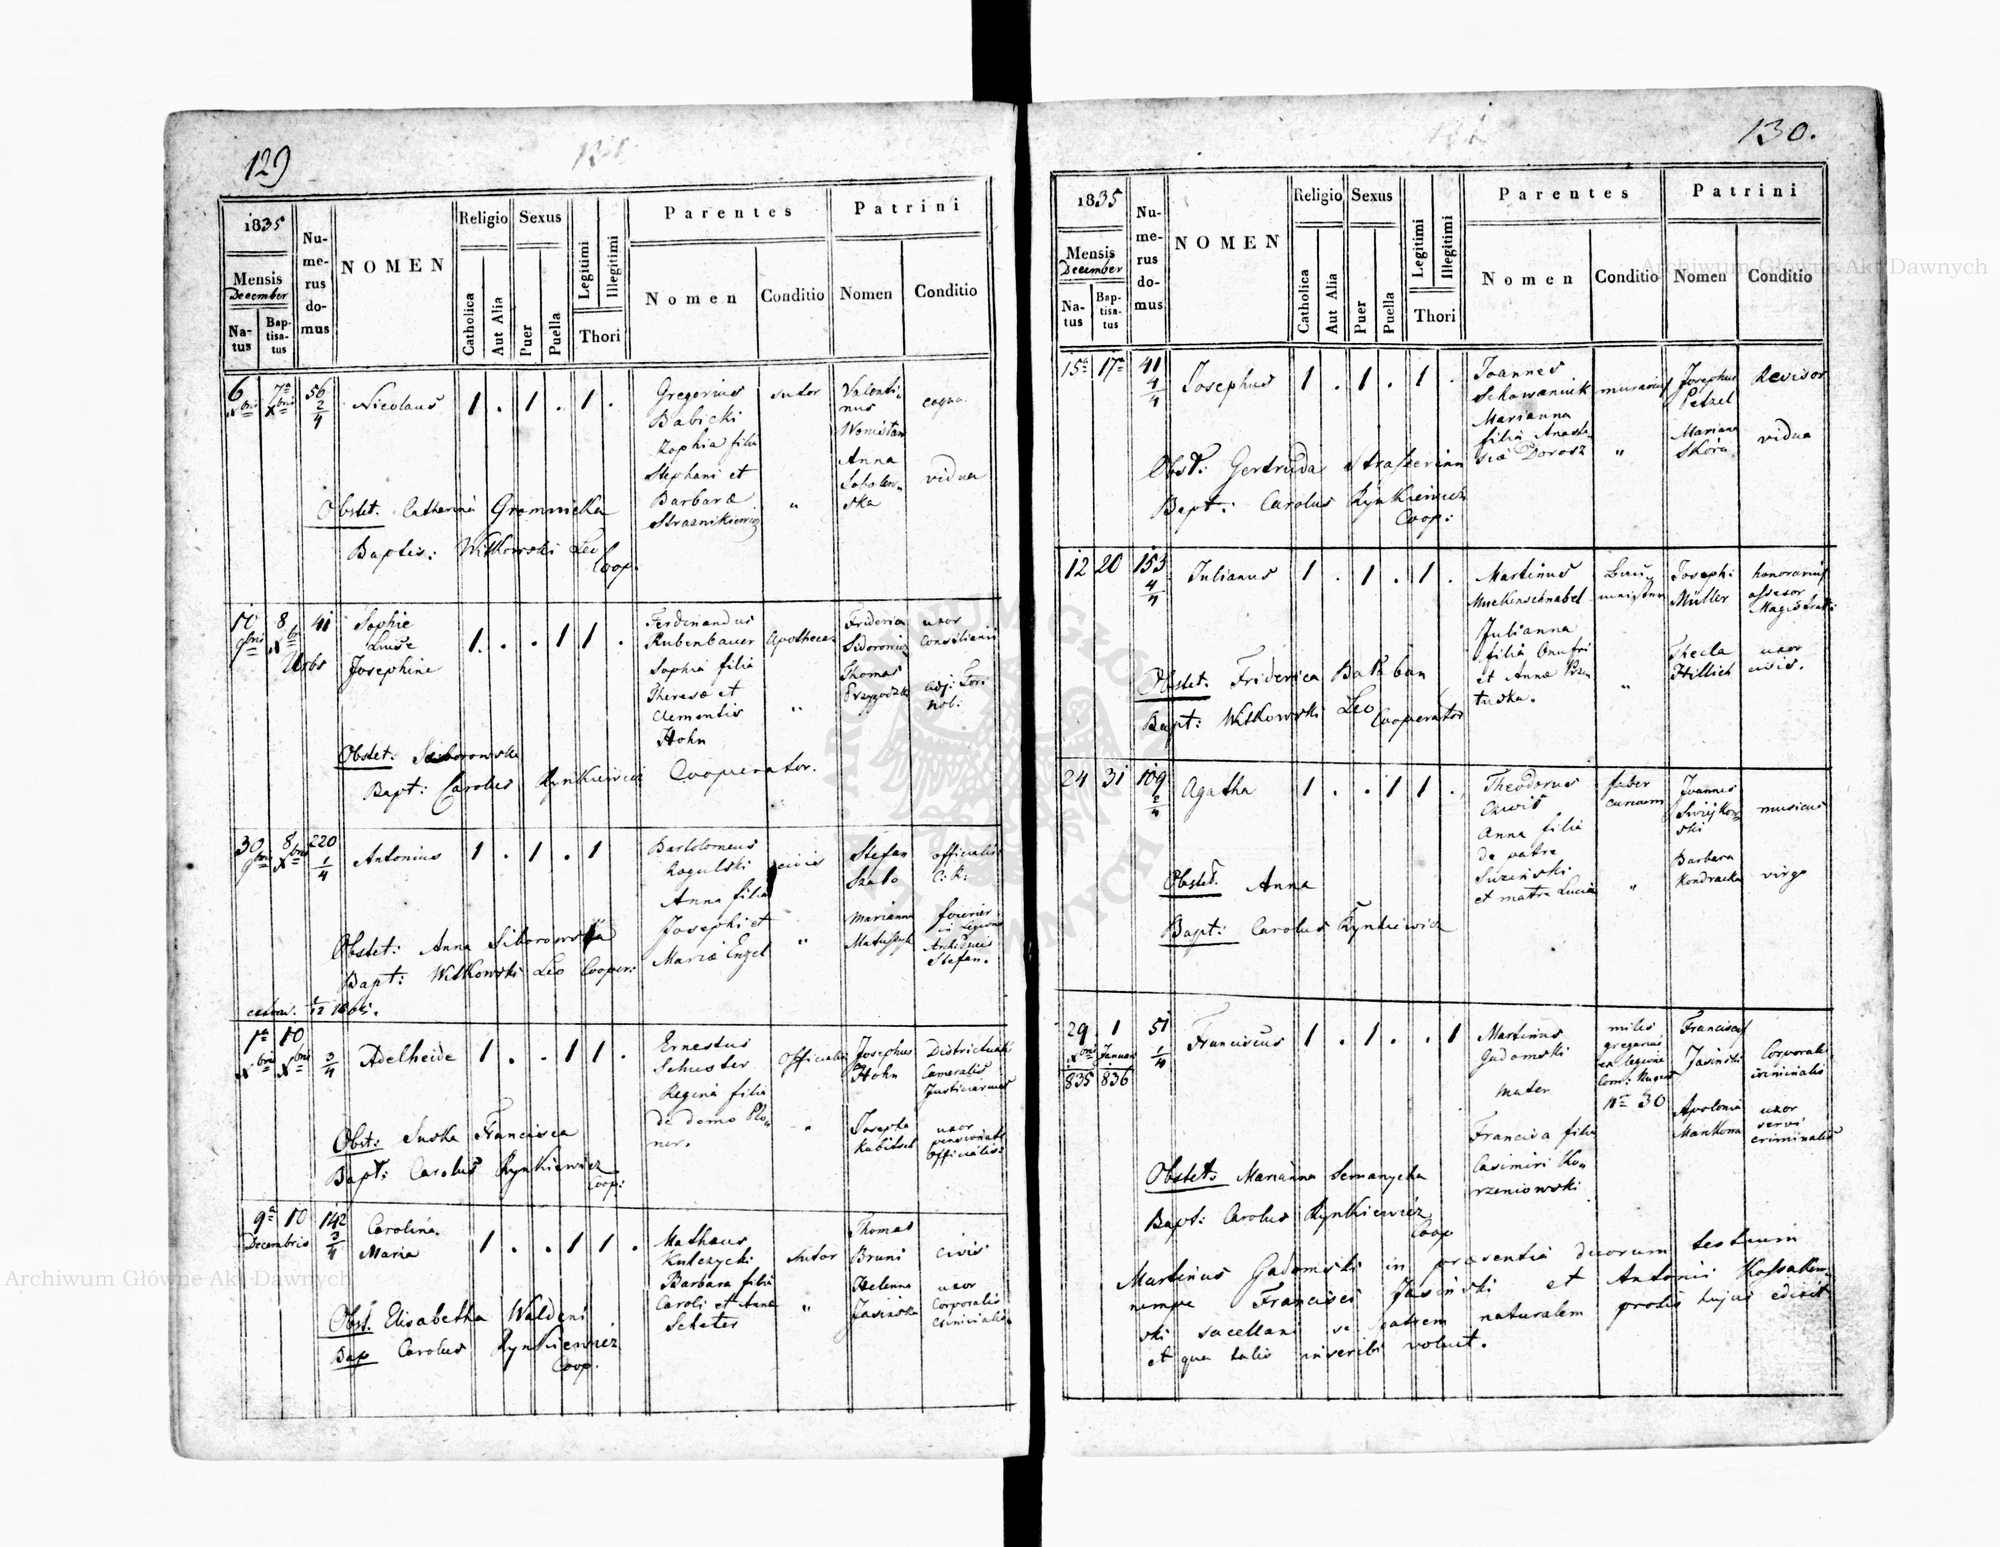 129
1835
Mensis
December
Na-
tus
Bap-
tisa-
tus
Nu-
me-
rus
do-
mus
NOMEN
Religio
Catholica
Aut Alia
Sexus
Puer
Puella
Legitimi
Illegitimi
Thori
Parentes
Nomen
Conditio
Patrini
Nomen
Conditio
6 Xbris
7a Xbris
56
2/4
Nicolaus
1 . 1 . 1 .
Gregorius
Babicki
Zophia filia
Stephani et
Barbaræ
Straznikiewicz
sutor
"
Valenti-
nus
Anna
Sobolew-
ska
vidua
Obstet. Catharina Gromnicka
Baptis: Witkowski Leo
Coop.
10 9bris
8 Xbr
41
Urbs
Sophie
Luise
Josephine
1 . . 1 1 .
Ferdinandus
Rubenbauer
Sophia filia
Theresæ et
Clementis
Hohn
Apothecar
"
Friderica
Sidorowicz
Thomas
uxor
Consiliarii
adj: Fori
Nob:
Obstet:
Bapt: Carolus Rynkiewicz Cooperator.
30 9bris
8 Xbris
220
1/4
Antonius
1 . 1 . 1
Bartolomeus
Rogulski
Anna filia
Josephi et
Mariæ Engel
civis
"
Stefan
Szabo
Marianna
officialis
C: R:
fourier
Legion
Archiducis
Stefan.
Obstet: Anna Siborowska
Bapt: Witkowski Leo Cooper:
1a Xbris
10 Xbris
3/4
Adelheide
1 . . 1 1 .
Ernestus
Schuster
Regina filia
de domo Plo-
ner.
Officialis
"
Josephus
Hohn
Josepha
Kubitsch
Districtual
Cameralis
Justiciarius
uxor
pensionati
Officialis:
Obst: Suska Francisca
Bapt: Carolus Rynkiewicz
Coop:
9a
10
Decembris
142
3/4
Carolina
Maria
1 . . 1 1 .
Mathaus
Kulczycki
Barbara filia
Caroli et Anna
Scheter
Sutor
"
Thomas
Bruni
Helena
Jasinska
civis
uxor
Corporalis
Obst. Elisabetha Waldeni
Bap Carolus Rynkiewicz
Coop.
130.
1835
Mensis
December
Na-
tus
Bap-
tisa-
tus
Nu-
me-
rus
do-
mus
NOMEN
Religio
Catholica
Aut Alia
Sexus
Puer
Puella
Legitimi
Illegitimi
Thori
Parentes
Nomen
Conditio
Patrini
Nomen
Conditio
15a
17a
41
4/4
Josephus
1 . 1 . 1 .
Joannes
Schowaniuk
Marianna
filia Anasta-
siæ Dorosz
murarius
"
Josephus
Petzel
Mariana
Skóra
Revisor
vidua
Obst: Gertruda
Bapt: Carolus Rynkiewicz
Coop:
12
20
153
4/4
Julianus
1 . 1 . 1 .
Martinus
Muckenschnabel
Julianna
filia Onufri
et Annæ
"
Joseph:
Müller
Thecla
Hillich
honorarius
assesor
uxor
civis.
Obstet. Friderica Balaban
Bapt: Witkowski Leo Cooperator
24
31
109
2/4
Agatha
1 . . 1 1 .
Theodorus
Anna filia
de patre
et matre Lucia
faber
"
Joannes
Barbara
Kondracka
musicus
virgo
Obstet. Anna
Bapt: Carolus Rynkiewicz
29
1
Xbris
Januar
835
836
51
1/4
Franciscus
1 . 1 . . 1
Martinus
Gadomski
mater
Francisca filia
Casimiri Ko-
rzeniowski
miles
gregarius
ex legione
Com: Nugent
Nro 30
Franciscus
Jasinski
Apolonia
Mankowa
Corporal
criminalis
uxor
servi
criminalis
Obstet: Marianna Semanycha
Bapt: Carolus Rynkiewicz
Coop
Martinus Gadomski in præsentia duorum testium
nempe Francisci Jasinski et Antonii Kossakow-
ski sacellani se patrem naturalem prolis hujus edixit
et qua talis inscribi voluit.
Archiwum Główne Akt Dawnych
Archiwum Główne Akt Dawnych